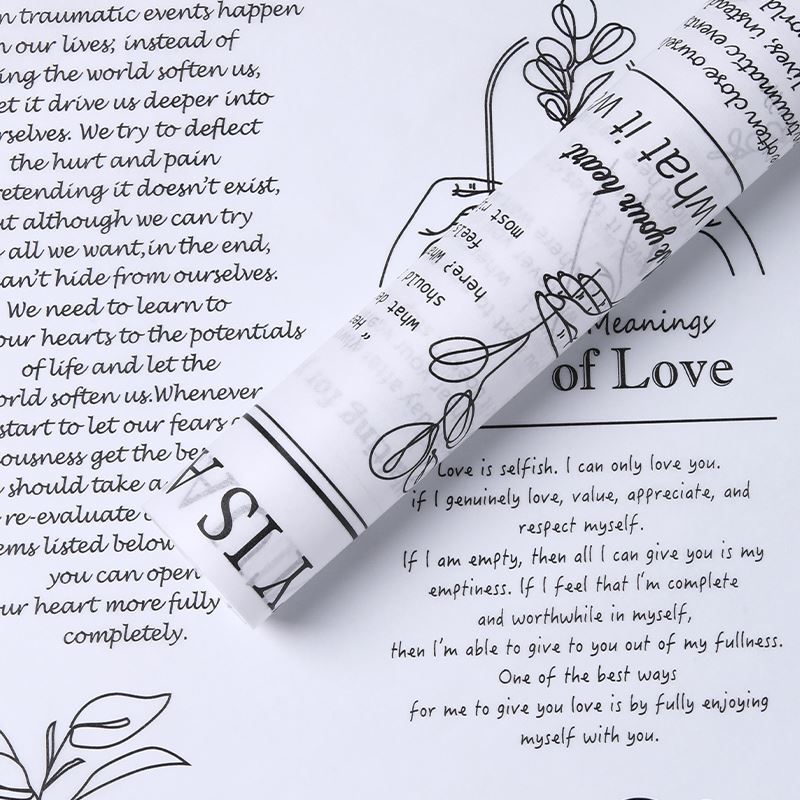 n traumatic events happen
n our lives; instead of
ing the world soften us,
et it drive us deeper into
rselves. We try to deflect
the hurt and pain
retending it doesn't exist,
ut although we can try
all we want,in the end,
an't hide from ourselves.
We need to learn to
our hearts to the potentials
of life and let the
orld soften us.Whenever
start to let our fears
ousness get the be
should take a
re-evaluate
ems listed below
you can open
ur heart more fully
completely.
traumatic event
often close oursel
lives; instead
world
What it W
your heart
most
feels
here?
should
what
YISA
Meanings
of Love
Love is selfish. I can only love you.
if I genuinely love, value, appreciate, and
respect myself.
If I am empty, then all I can give you is my
emptiness. If I feel that I'm complete
and worthwhile in myself,
then I'm able to give to you out of my fullness.
One of the best ways
for me to give you love is by fully enjoying
myself with you.